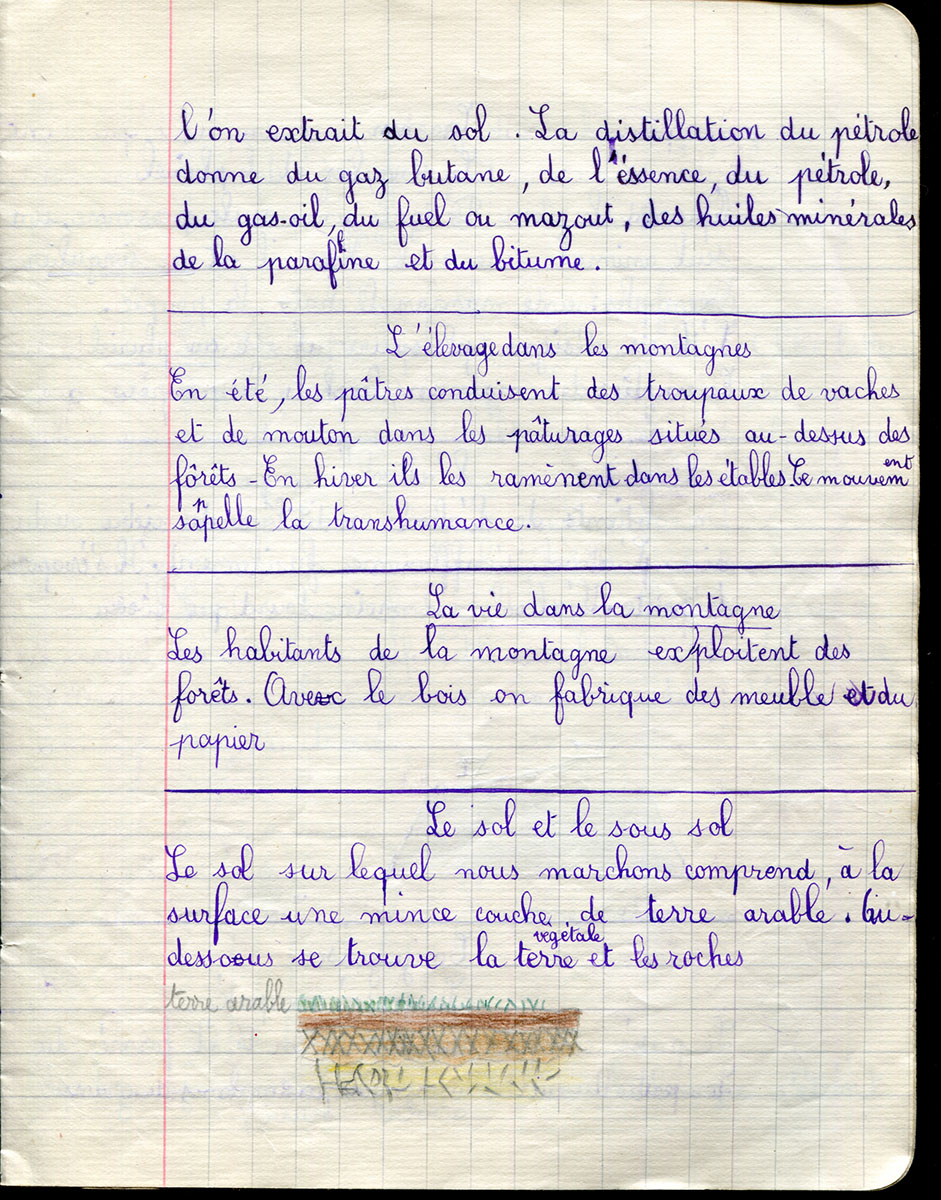 l'on extrait du sol. La distillation du pétrole
donne du gaz butane, de l'éssence, du pétrole,
du gas-oil, du fuel ou mazout, des huiles minérales
de la paraffine et du bitume.
L'élevage dans les montagnes
En été, les pâtres conduisent des troupaux de vaches
et de mouton dans les pâturages situés au-dessus des
fôrêts - En hiver ils les ramènent dans les étables. Ce mouvement
s'appelle la transhumance.
La vie dans la montagne
Les habitants de la montagne exploitent des
forêts. Avec le bois on fabrique des meuble et du
papier
Le sol et le sous sol
Le sol sur lequel nous marchons comprend, à la
surface une mince couche de terre arable. Au-
dessous se trouve la terre végétale et les roches
terre arable